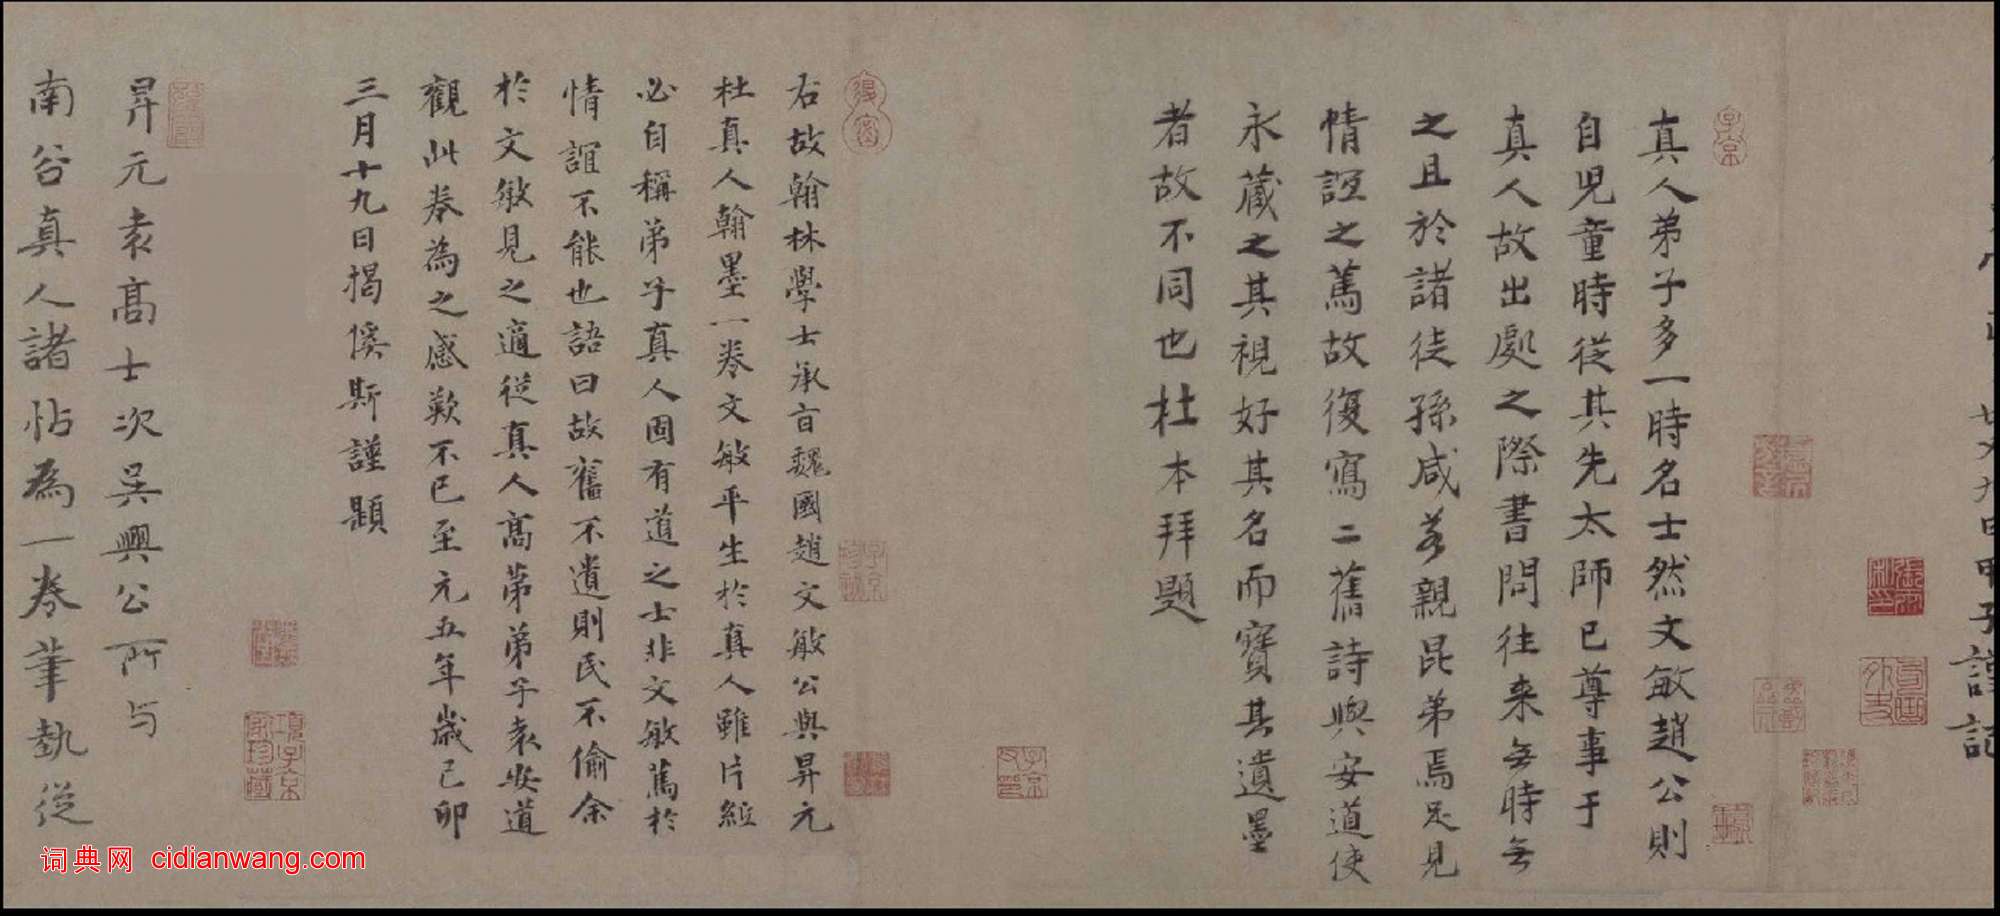 廿又九日甲子謹記
真人弟子多一時名士然文敏趙公則
自児童時從其先太師已尊事于
真人故出處之際書問往来無時無
之且於諸徒孫咸若親昆弟焉足見
情誼之篤故復寫二舊詩與安道使
永蔵之其視好其名而寶其遺墨
者故不同也杜本拜題
右故翰林學士承旨魏國趙文敏公與昇元
杜真人翰墨一卷文敏平生於真人雖片紙
必自稱弟子真人固有道之士非文敏篤於
情誼不能也語曰故舊不遺則民不偷余
於文敏見之適從真人高弟弟子袁安道
觀此卷為之感歎不已至元五年歲己卯
三月十九日揭傒斯謹題
昇元袁髙士次吳興公所与
南谷真人諸帖為一卷筆執從
词典网 cidianwang.com